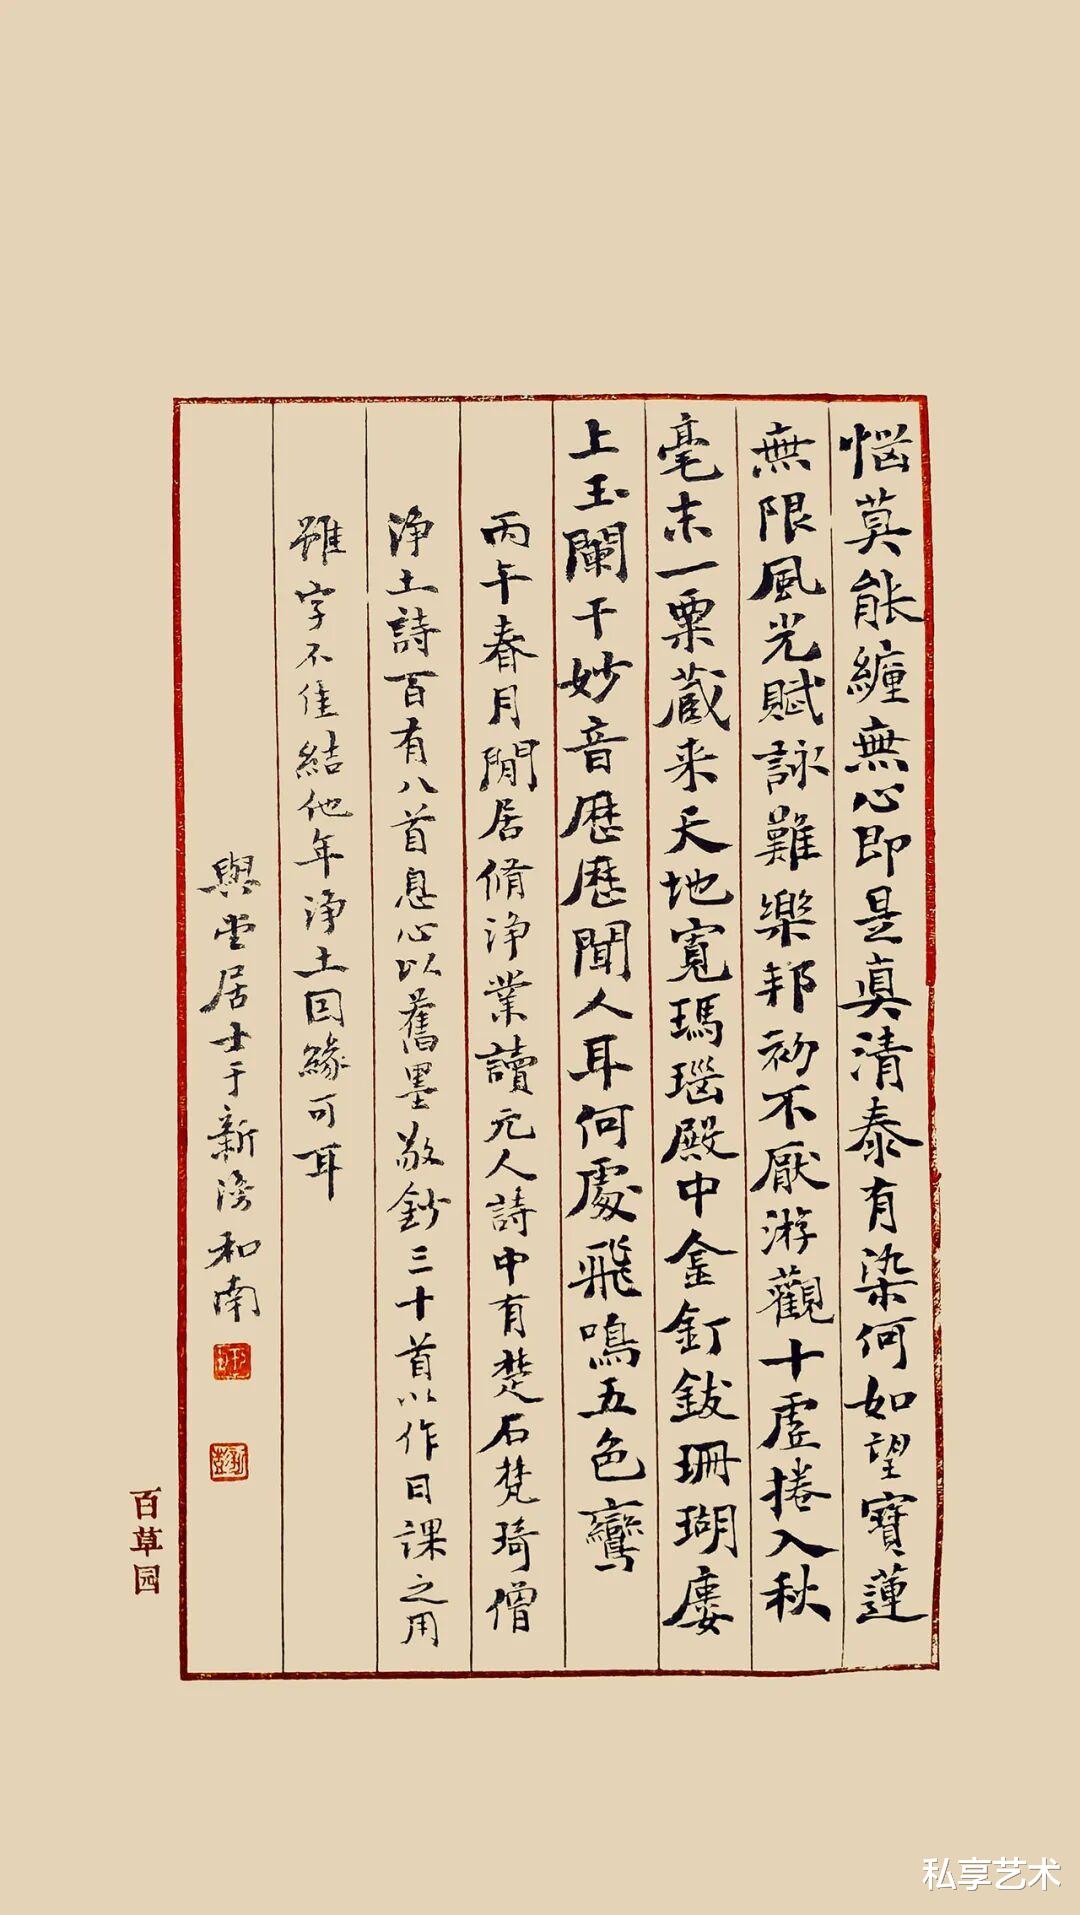 惱莫能纏無心即是真清泰有染何如望寶蓮
無限風光賦詠難樂邦初不厭游觀十虛捲入秋
毫末一粟藏来天地寬瑪瑙殿中金釘鈸珊瑚廔
上玉闌干妙音歷歷聞人耳何處飛鳴五色鸞
丙午春月閒居脩淨業讀元人詩中有楚石梵琦僧
淨土詩百有八首息心以舊墨敬鈔三十首以作日課之用
雖字不佳結他年淨土因緣可耳
與堂居士于新灣和南
百草园
私享艺术